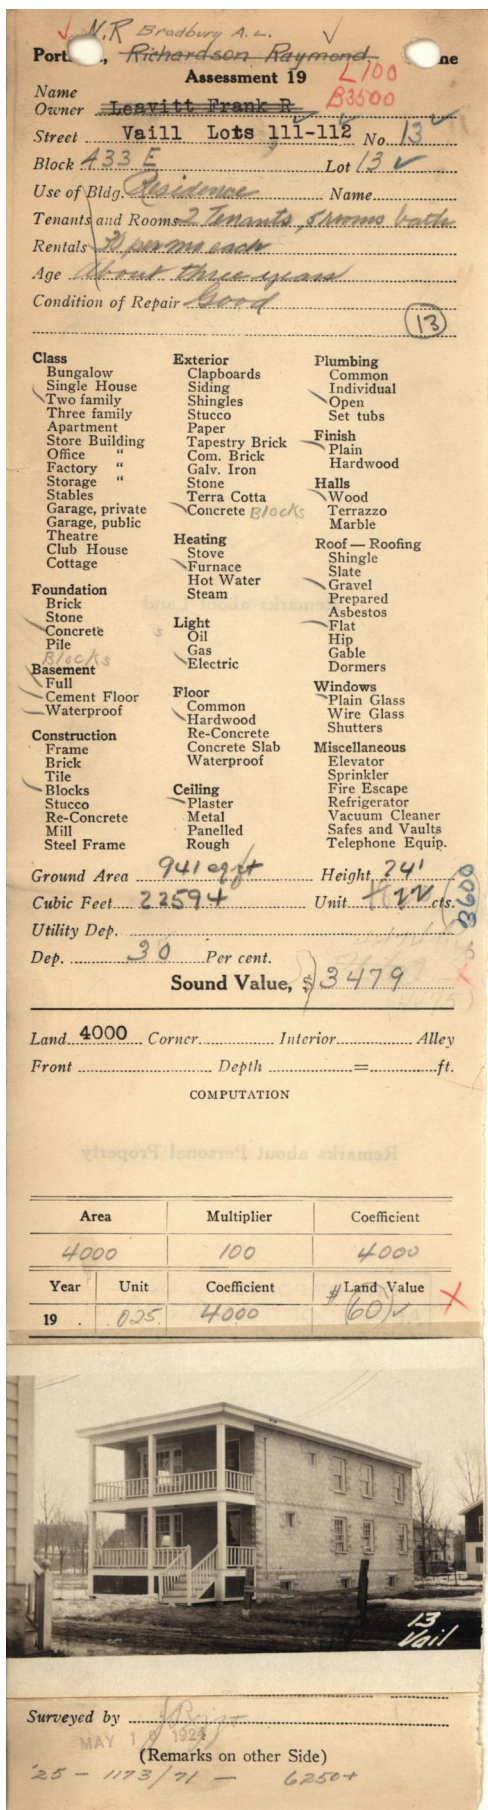 N.R Bradbury A. L.
Port Richardson Raymond. ne
Assessment 19
L100
B3500
Name
Owner Leavitt Frank R
Street Vaill Lots 111-112 No. 13
Block 433 E Lot 13
Use of Bldg. Residence Name
Tenants and Rooms 2 Tenants, 5 rooms bath
Rentals per mo each
Age About three years
Condition of Repair Good
13
Class
Bungalow
Single House
Two family
Three family
Apartment
Store Building
Office "
Factory "
Storage "
Stables
Garage, private
Garage, public
Theatre
Club House
Cottage
Foundation
Brick
Stone
Concrete
Pile
Blocks
Basement
Full
Cement Floor
Waterproof
Construction
Frame
Brick
Tile
Blocks
Stucco
Re-Concrete
Mill
Steel Frame
Exterior
Clapboards
Siding
Shingles
Stucco
Paper
Tapestry Brick
Com. Brick
Galv. Iron
Stone
Terra Cotta
Concrete Blocks
Heating
Stove
Furnace
Hot Water
Steam
Light
Oil
Gas
Electric
Floor
Common
Hardwood
Re-Concrete
Concrete Slab
Waterproof
Ceiling
Plaster
Metal
Panelled
Rough
Plumbing
Common
Individual
Open
Set tubs
Finish
Plain
Hardwood
Halls
Wood
Terrazzo
Marble
Roof — Roofing
Shingle
Slate
Gravel
Prepared
Asbestos
Flat
Hip
Gable
Dormers
Windows
Plain Glass
Wire Glass
Shutters
Miscellaneous
Elevator
Sprinkler
Fire Escape
Refrigerator
Vacuum Cleaner
Safes and Vaults
Telephone Equip.
Ground Area 941 sq ft Height 24'
Cubic Feet 22594 Unit 22 cts.
3600
Utility Dep.
Dep. 30 Per cent.
Sound Value, $ 3479
Land 4000 Corner Interior Alley
Front Depth = ft.
COMPUTATION
Area Multiplier Coefficient
4000 100 4000
Year Unit Coefficient $ Land Value
19 .025 4000 (60)
13
Vail
Surveyed by
MAY 1 1924
(Remarks on other Side)
'25 - 1173/71 - 6250+